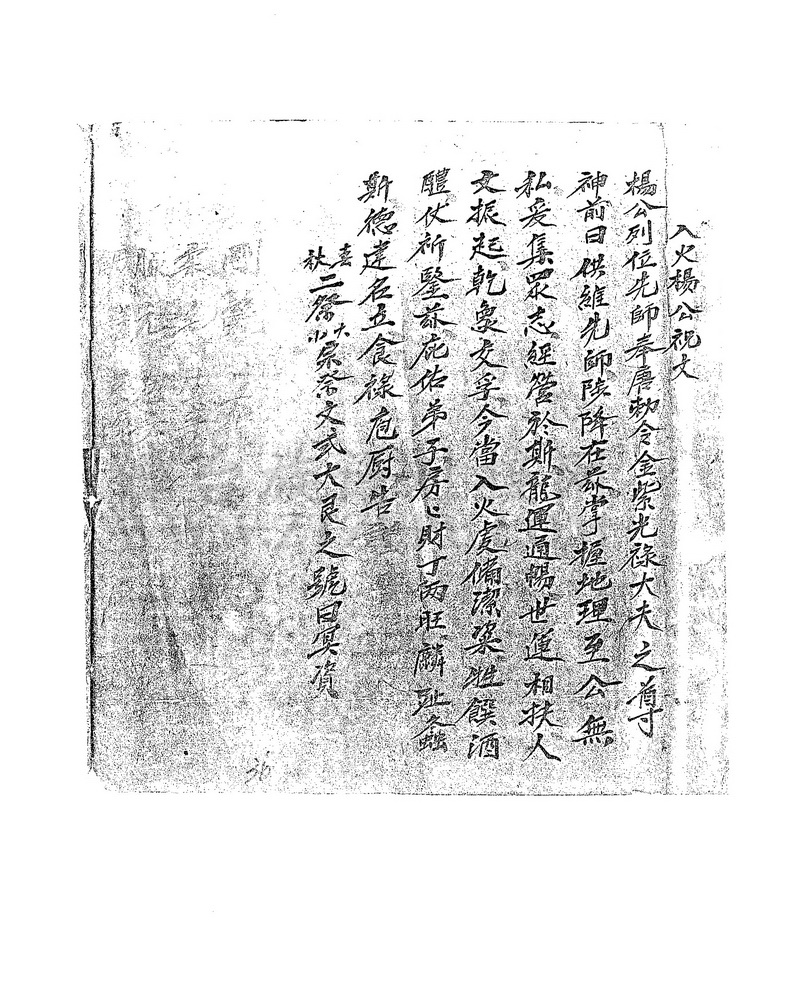 入火楊公祝文
楊公列位先師奉唐勅令金紫光祿大夫之尊
神前曰供維先師陟降在茲掌握地理至公無
私爰集眾志經營於斯龍運通暢世運相扶人
文振起乾象交孚今當入火處備潔粢牲饌酒
醴伏祈鑒茲庇佑弟子房々財丁兩旺麟趾螽
斯德建名立食祿庖厨告
春秋二祭大小祭文式大艮之號曰冥資
36